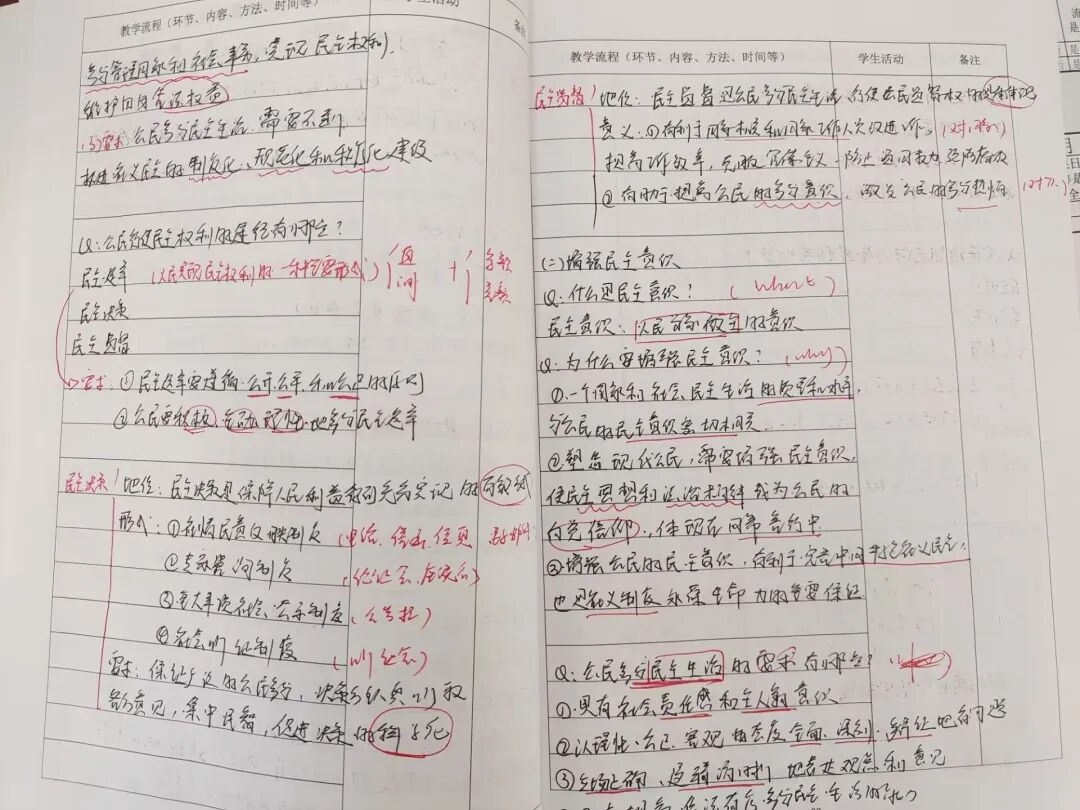 教学流程（环节、内容、方法、时间等）
学生活动
备注
参与管理国家和社会事务，实现民主权利，
维护自身合法权益
(3)要求：公民参与民主生活，需要不断
推进社会主义民主的制度化、规范化和程序化建设
Q：公民行使民主权利的途径有哪些？
民主选举（人民实现民主权利的一种重要形式）{直 间 + { 等额 差额
民主决策
民主监督
要求：①民主选举要遵循公开、公平、和公正的原则
②公民要积极、主动、理性地参与民主选举
民主决策 地位：民主决策是保障人民利益得到充分实现的有效方式
形式：①社情民意反映制度（电话、信函、信息、 ）
②专家咨询制度（论证会、座谈会）
③重大事项社会公示制度（公告栏）
④社会听证制度（听证会）
要求：保证广泛的公民参与，决策者认真听取
各方意见，集中民智，促进决策的科学化
教学流程（环节、内容、方法、时间等）
学生活动
备注
民主监督 地位：民主监督是公民参与民主生活、行使公民监督权的具体体现
意义：①有利于国家机关和国家工作人员改进工作，（对 ）
提高工作效率，克服官僚主义，防止滥用权力，预防腐败
②有助于提高公民的参与意识，激发公民的参与热情（对公）
(二)增强民主意识
Q：什么是民主意识？（what）
民主意识：人民当家做主的意识
Q：为什么要增强民主意识？（why）
①一个国家和社会民主生活的质量和水平，
与公民的民主意识密切相关
②塑造现代公民，需要增强民主意识，
使民主思想和法治精神成为公民的
内在信仰，体现在日常言行中
③增强公民的民主意识，有利于完善中国特色社会主义民主，
也是社会制度永葆生命力的重要保证
Q：公民参与民主生活的要求有哪些？
①具有社会责任感和主人翁意识
②以理性、公正、客观的态度全面、深刻、辩证地看问题
③立场正确，逻辑清晰地表达观点和意见